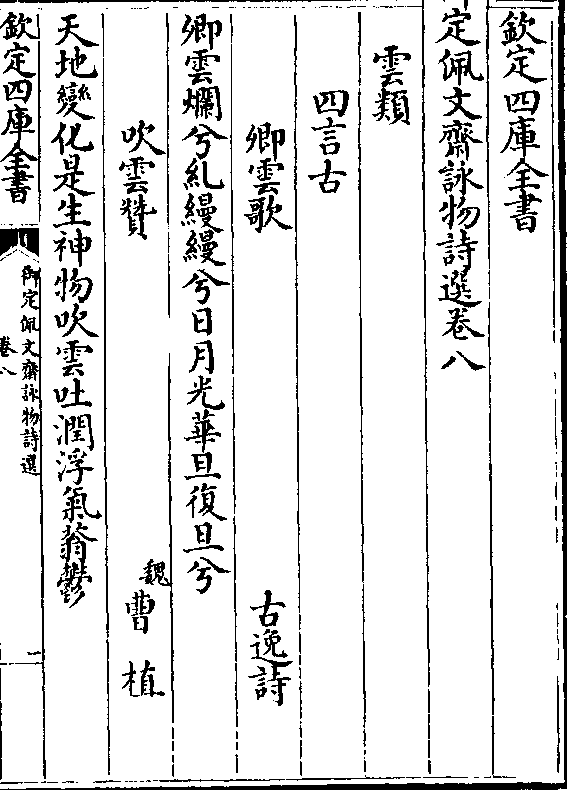 欽定四庫全書
定佩文齋詠物詩選卷八
雲類
四言古
卿雲歌 古逸詩
卿雲爛兮乣縵縵兮日月光華旦復旦兮
吹雲贊 魏曹植
天地變化是生神物吹雲吐潤浮氣蓊鬱
欽定四庫全書
御定佩文齋詠物詩選
卷八
一